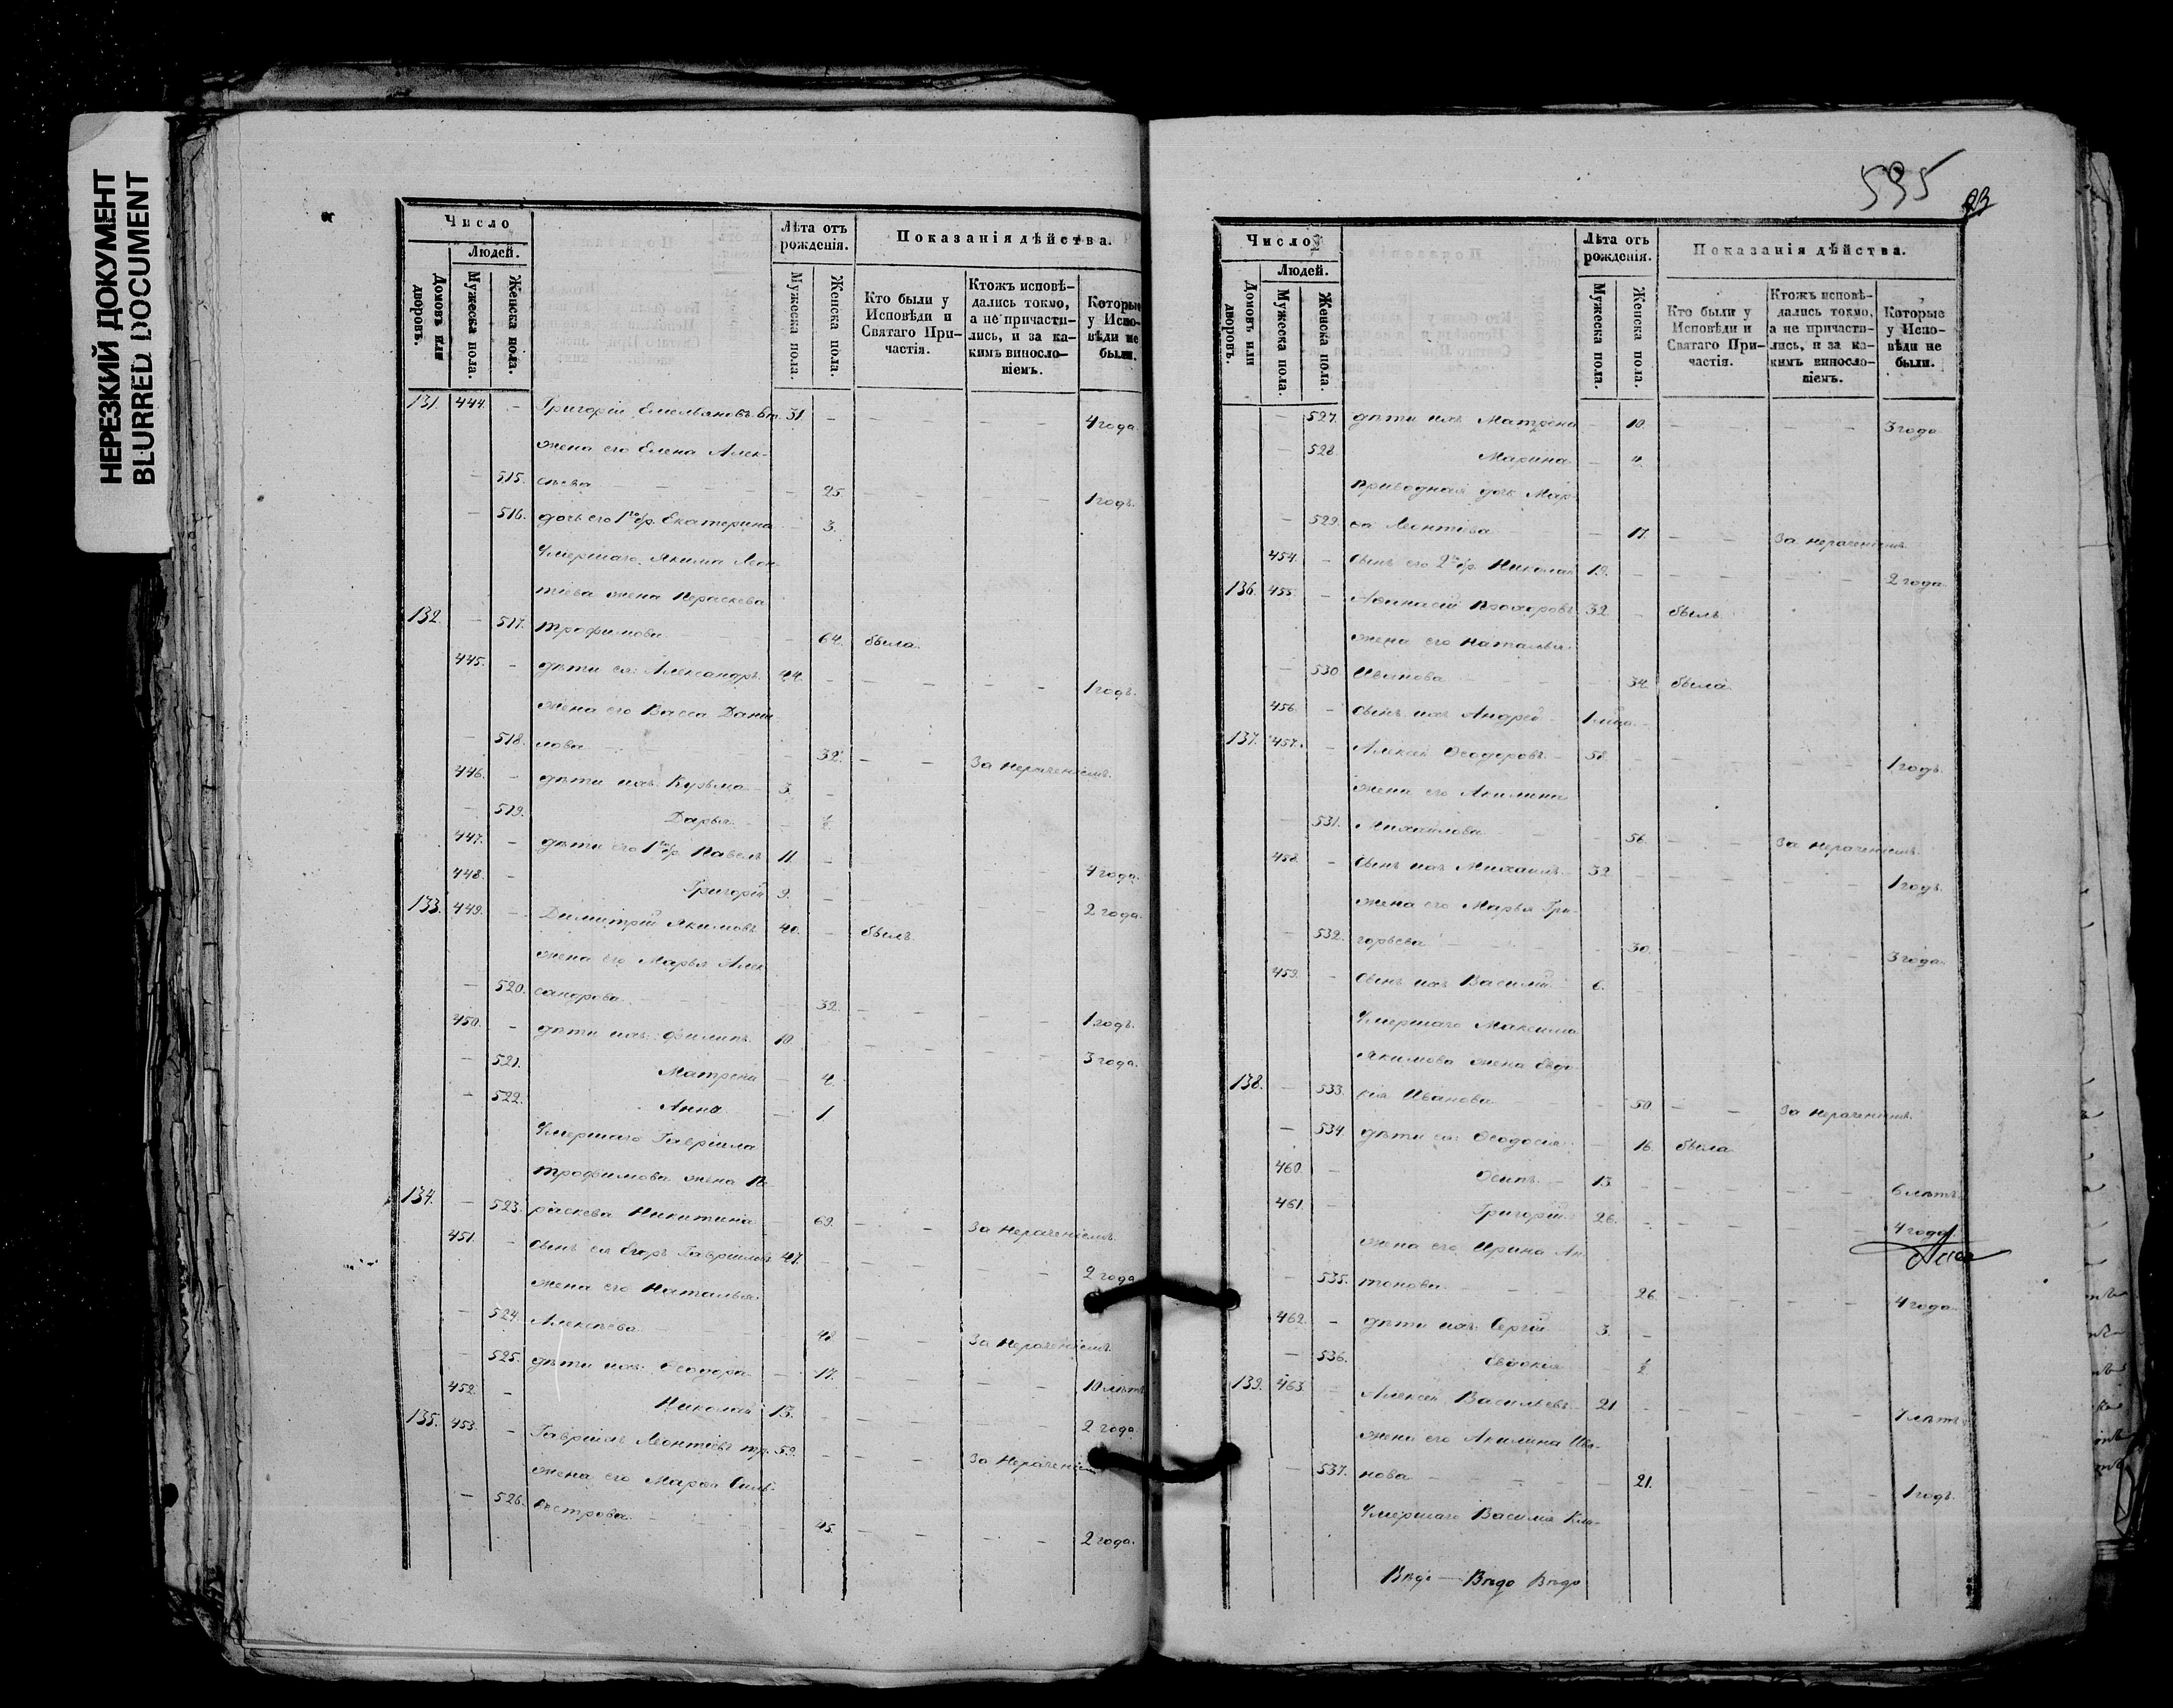 НЕРЕЗКИЙ ДОКУМЕНТ
BLURRED DOCUMENT
Число
Людей.
Домовъ или дворовъ.
Мужеска пола.
Женска пола.
Лѣта отъ рожденія.
Мужеска пола.
Женска пола.
Показанія дѣйства.
Кто были у Исповѣди и Святаго Причастія.
Ктожъ исповѣдались токмо, а не причастились, и за какимъ винословіемъ.
Которые у Исповѣди не были.
131. 444. – Григорій Емельяновъ 31. – – – – – 4 года.
жена его Елена Алек-
– 515. сѣева – 25. – – – – 1 годъ.
– 516. дочь его 1го бр. Екатерина – 3.
Умершаго Якима Леон-
тіева жена Параскева
132 – 517. Трофимова – 64. была.
445. – дѣти ея: Александръ 44. – – – – – 1 годъ.
жена его Васса Дани-
– 518. лова – 32. – – За нераченіемъ.
446. – дѣти ихъ: Кузьма 3. –
– 519. Дарья – ½
447. – дѣти его 1го бр. Павелъ 11. – – – – – 4 года.
448. – Григорій 9. – – – – – 2 года.
133. 449. – Димитрій Якимовъ 40. – былъ.
жена его Марья Алек-
– 520. сандрова – 32. – – – – 1 годъ.
450. – дѣти ихъ: Филипъ 10. – – – – – 3 года.
– 521. Матрена – 4.
– 522. Анна – 1
Умершаго Гавріила
Трофимова жена Па-
134. – 523. раскева Никитина – 69. – – За нераченіемъ.
451. – сынъ ея Егоръ Гавріиловъ 47. – – – – – 2 года
жена его Наталья
– 524. Алексѣева – 48 – – За нераченіемъ
– 525. дѣти ихъ: Ѳеодора – 17. – – – – 10 лѣтъ
452. – Николай 13. – – – – – 2 года.
135. 453. – Гавріилъ Леонтіевъ 59. – – – За нераченіем
жена его Марѳа Силь-
– 526. вестрова – 45. – – – – 2 года.
595
93
Число
Людей.
Домовъ или дворовъ.
Мужеска пола
Женска пола.
Лѣта отъ рожденія.
Мужеска пола.
Женска пола.
Показанія дѣйства.
Кто были у Исповѣди и Святаго Причастія.
Ктожъ исповѣдались токмо, а не причастились, и за какимъ винословіемъ.
Которые у Исповѣди не были.
– 527. дѣти ихъ Матрена – 10. – – – – 3 года
– 528 Марина – 4.
приводная дочь Мар-
– 529. ѳа Леонтіева – 17. – – За нераченіемъ.
454. – Сынъ его 2го бр. Николай 19. – – – – – 2 года
136. 455. – Аѳанасій Прохоровъ 32 – былъ
жена его Наталья
– 530 Иванова – 34. была
456. – Сынъ ихъ Андрей –
137. 457. – Алексѣй Ѳеодоровъ – 58. – – – – – 1 годъ.
жена его Акилина
– 531. Михайлова – 56. – – За нераченіемъ.
458. – Сынъ ихъ Михаилъ – 32 – – – – – 1 годъ.
жена его Марья Гри-
– 532. горьева – 30. – – – – 3 года.
459. – Сынъ ихъ Василій 6.
Умершаго Максима
Якимова жена Евдо-
138. – 533. кія Иванова – 50 – – За нераченіемъ.
– 534. дѣти ея: Ѳеодосія – 16. была
460. – Осипъ – 13. – – – – – 6 лѣтъ.
461. – Григорій 26. – – – – – 4 года.
жена его Ирина Ан-
– 535. тонова – 26. – – – – 4 года.
462. – дѣти ихъ: Сергій 3. –
– 536. Евдокія – ½
139. 463. – Алексѣй Васильевъ – 21 – – – – – 7 лѣтъ.
жена его Акилина Ива-
– 537. нова – 21. – – – – 1 годъ.
Умершаго Василія